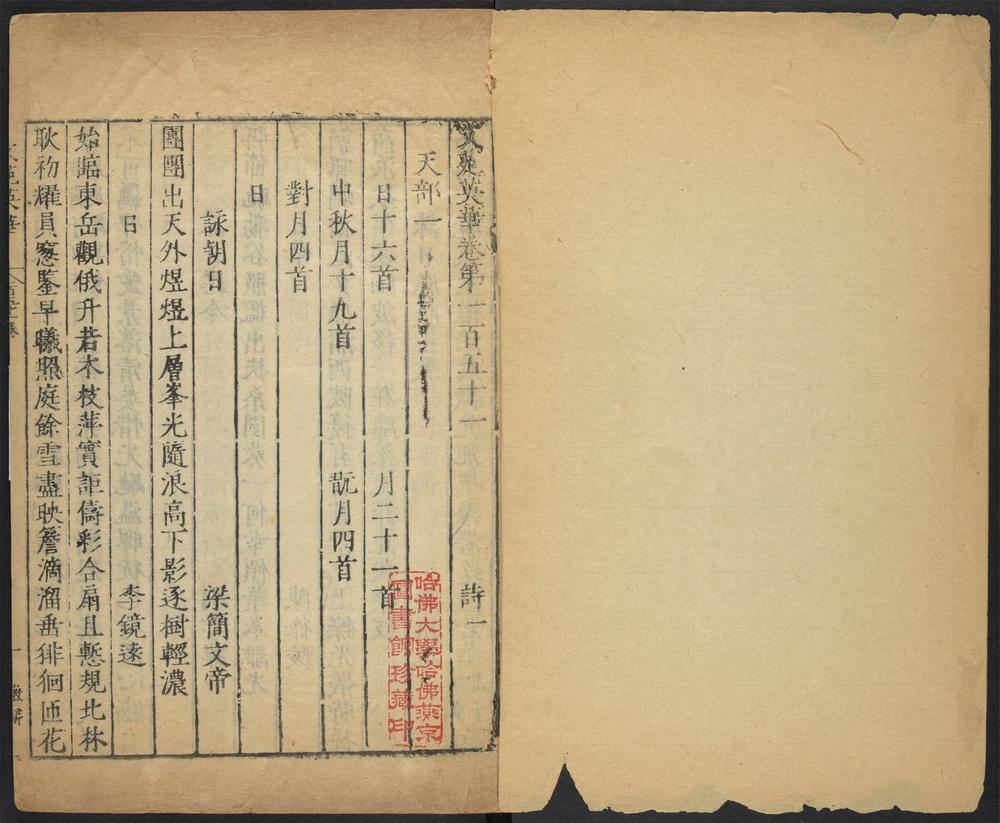 文苑英華卷第一百五十一 詩一
天部一
日十六首 月二十一首
中秋月十九首 翫月四首
對月四首
日
詠朝日 梁簡文帝
團團出天外煜煜上層峯光隨浪高下影逐樹輕濃
日 李鏡遠
始臨東岳觀俄升若木枝萍實詎儔彩合扇且慙規北林
耿初耀員窓鑒早曦照庭餘雪盡映簷滴溜垂徘徊匝花
文苑英華
一
哈佛大學哈佛燕京
圖書館珍藏印